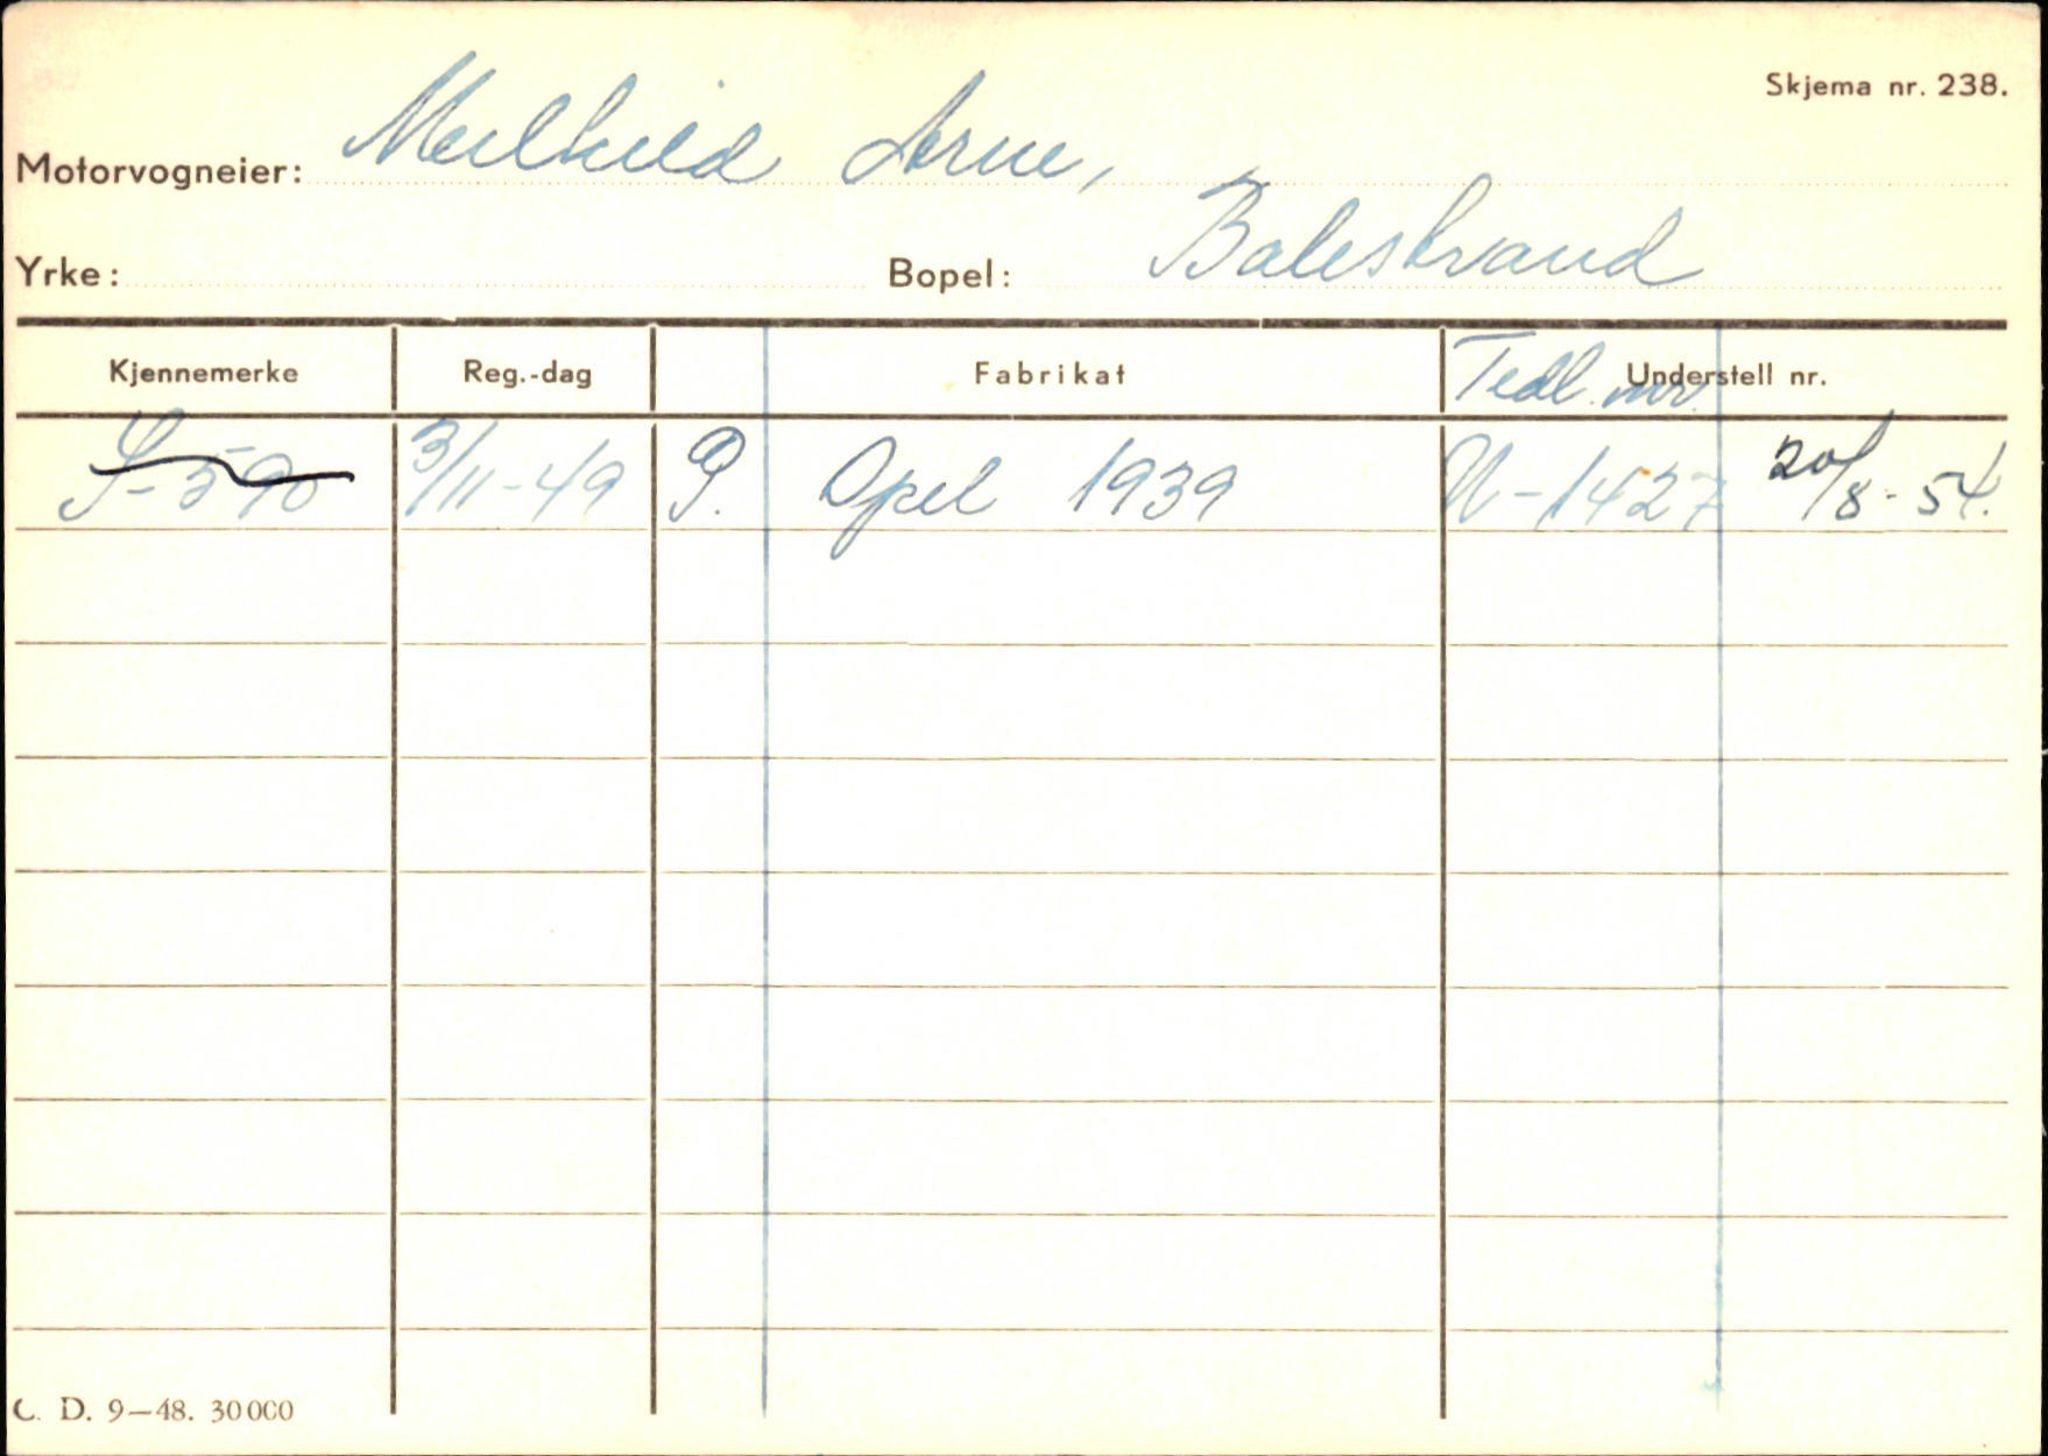 Skjema nr. 238.
Motorvogneier: Melhild Arne,
Yrke: Bopel: Balestrand
Kjennemerke Reg.-dag Fabrikat Tedl. nr. Understell nr.
S-590 3/11-49 P. Opel 1939 U-1427 20/8-54.
C. D. 9—48. 30000